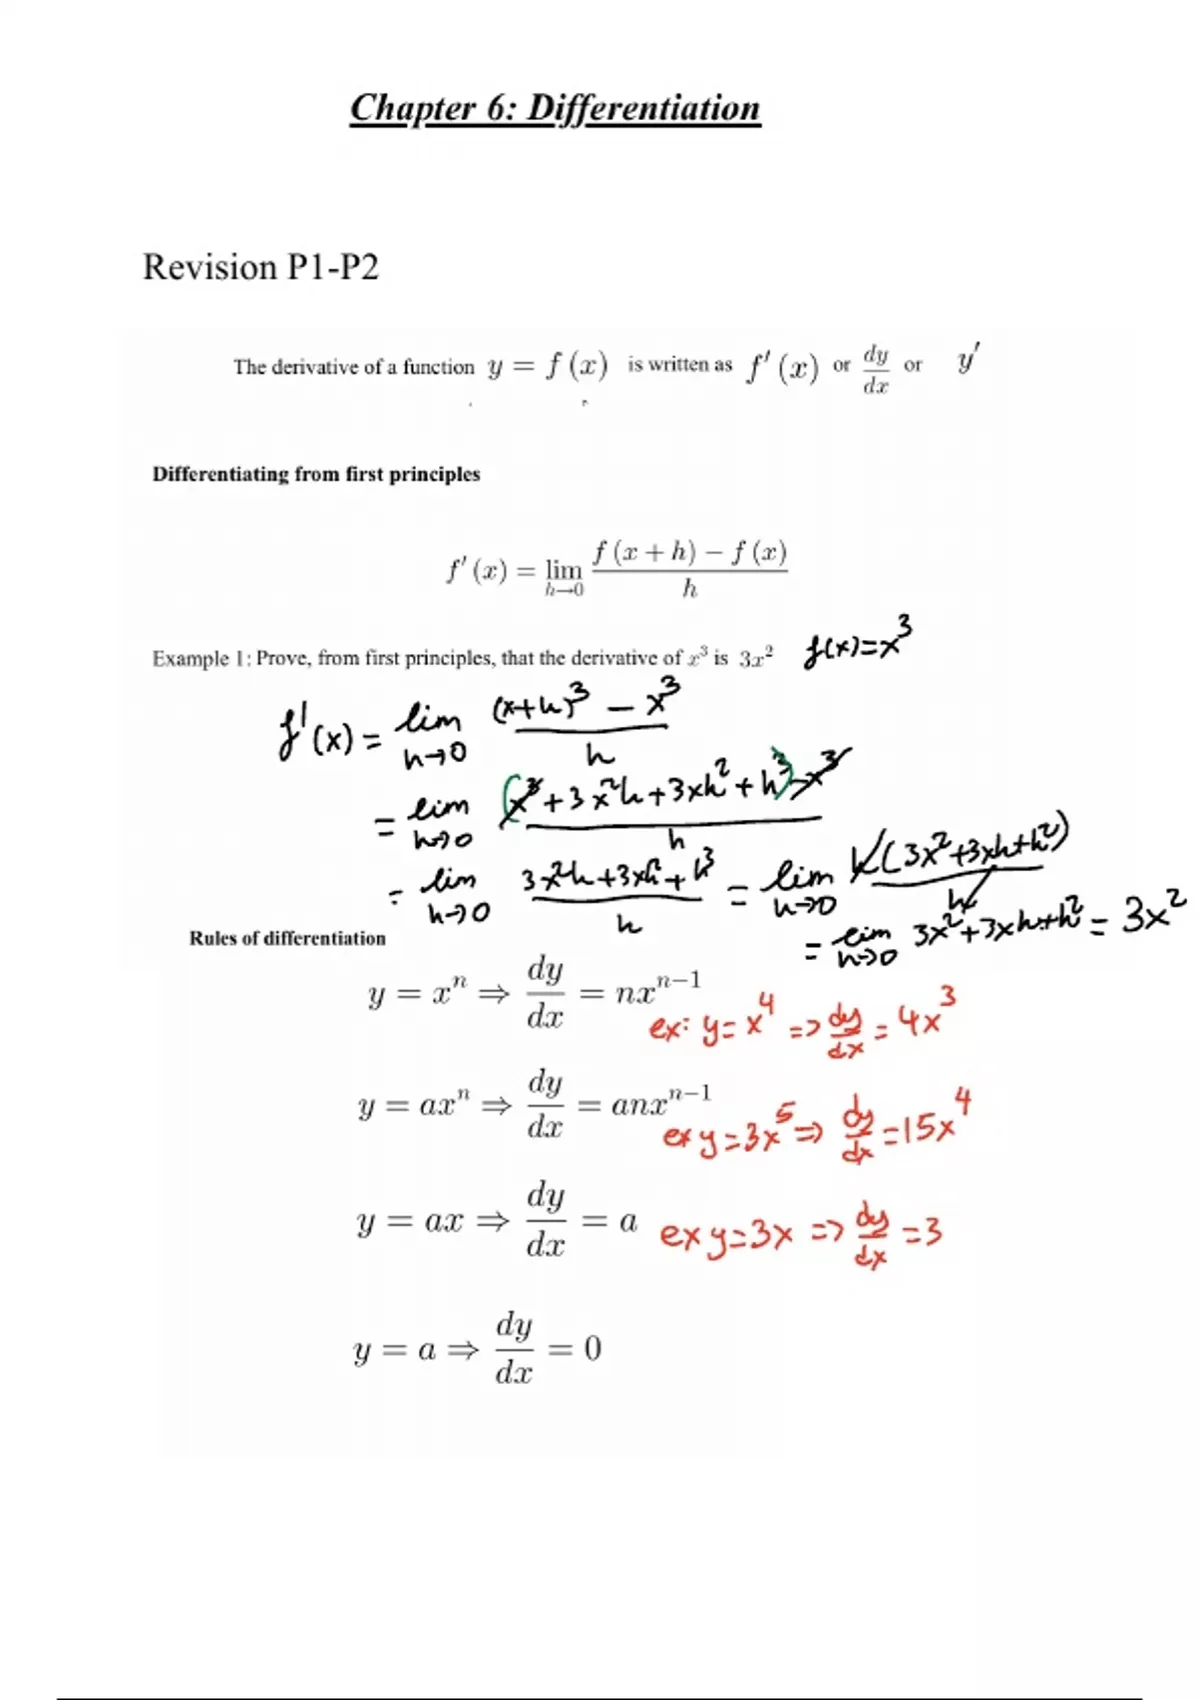 Chapter 6: Differentiation
Revision P1-P2
The derivative of a function y = f (x) is written as f′ (x) or dy/dx or y′
Differentiating from first principles
f′ (x) = lim h→0 (f (x + h) − f (x))/h
Example 1: Prove, from first principles, that the derivative of x³ is 3x² f(x)=x³
f'(x) = lim h→0 ((x+h)³ − x³)/h
= lim h→0 ((x³+3x²h+3xh²+h³)−x³)/h
= lim h→0 (3x²h+3xh²+h³)/h = lim h→0 h(3x²+3xh+h²)/h
= lim h→0 3x²+3xh+h² = 3x²
Rules of differentiation
y = xⁿ ⇒ dy/dx = nxⁿ⁻¹
ex: y=x⁴ => dy/dx = 4x³
y = axⁿ ⇒ dy/dx = anxⁿ⁻¹
ex y=3x⁵ => dy/dx =15x⁴
y = ax ⇒ dy/dx = a ex y=3x => dy/dx =3
y = a ⇒ dy/dx = 0